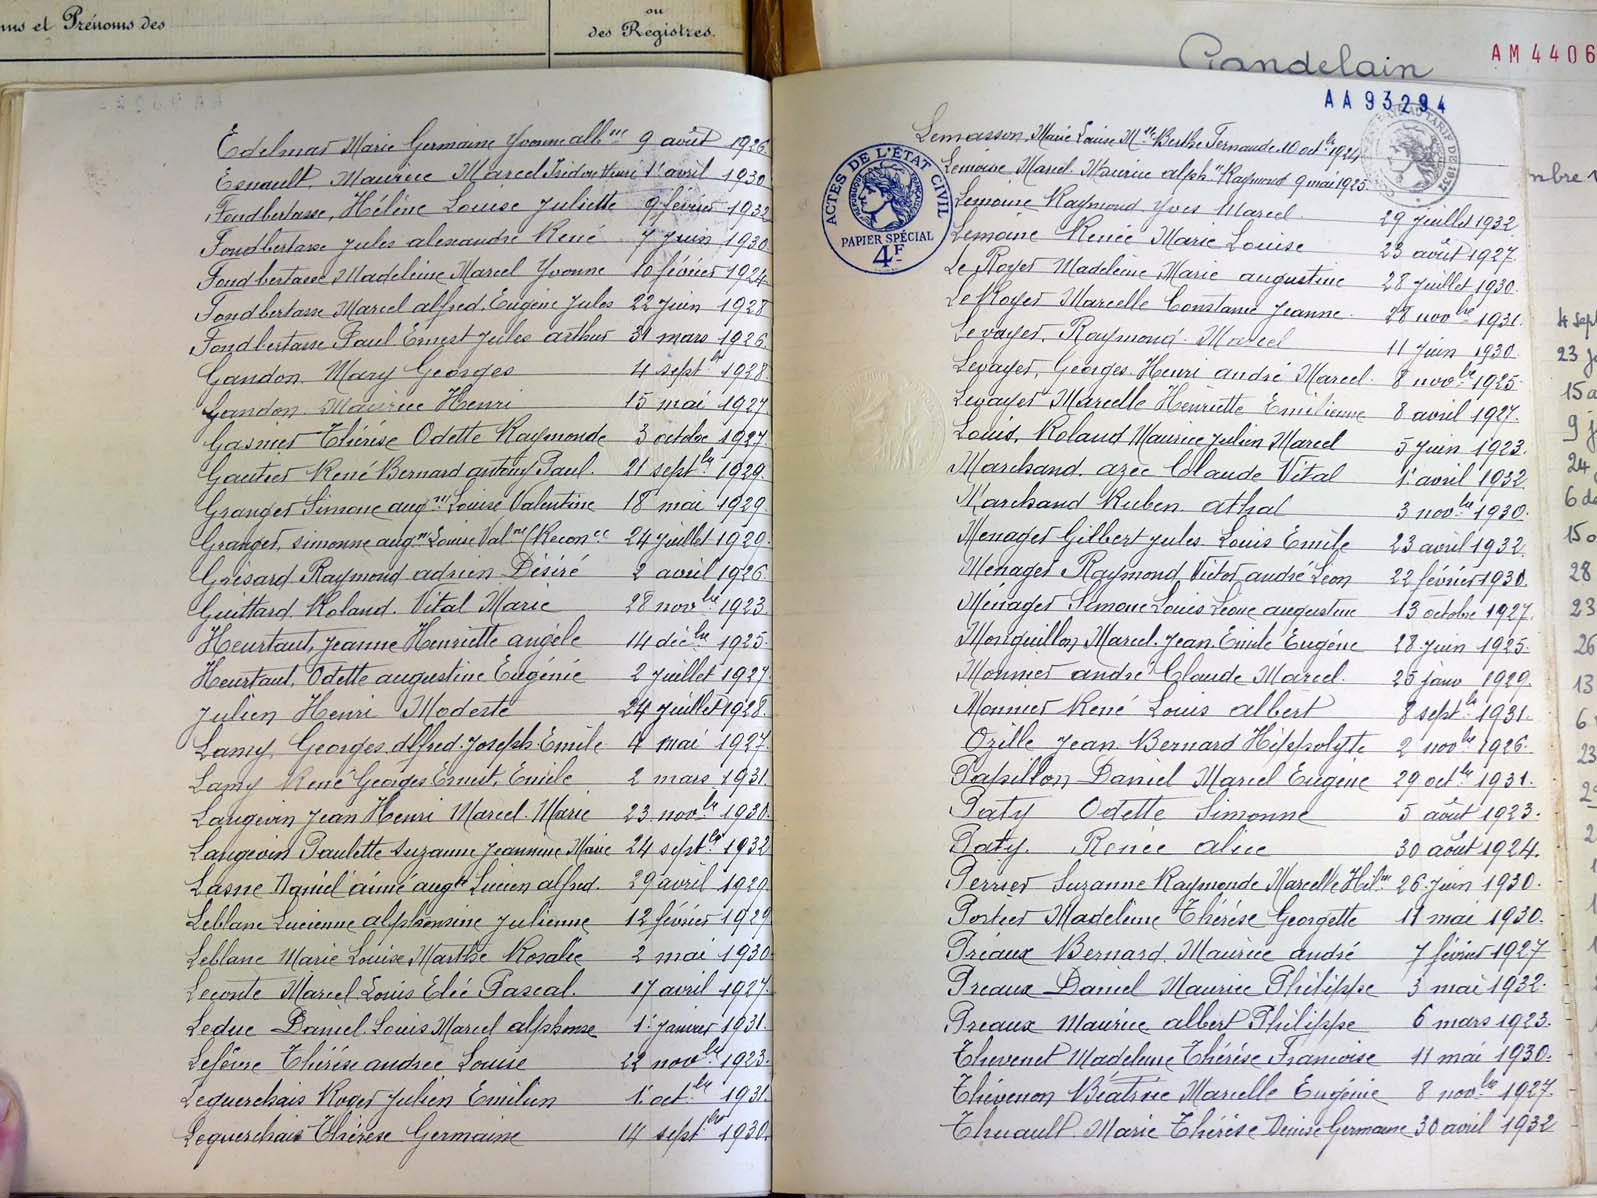 ms et Prénoms des
ou
des Registres.
Gandelain
AM 4406
AA 93294
Edelmar Marie Germaine Yvonne alb.ne 9 août 1926
Esnault, Maurice Marcel Isidore Henri 1er avril 1930
Fondbertasse, Hélène Louise Juliette 9 février 1932
Fondbertasse Jules alexandre René 7 Juin 1930
Fondbertasse Madeleine Marcel Yvonne 10 février 1924
Fondbertasse Marcel alfred Eugène Jules 22 Juin 1928
Fondbertasse Paul Ernest Jules arthur 31 mars 1926
Gandon Mary Georges 4 septbre 1928
Gandon Maurice Henri 15 mai 1927
Gasnier Thérèse Odette Raymonde 3 octobre 1927
Gautier René Bernard antony Paul. 21 septbre 1929.
Granger Simone aug.ne Louise Valentine 18 mai 1929.
Granger, simonne aug.ne Louise Val.ne (Reconce 24 juillet 1929.
Grisard Raymond adrien Désiré 2 avril 1926
Guittard Roland Vital Marie 28 novbre 1923
Heurtaut, Jeanne Henriette angèle 14 décbre 1925
Heurtaut, Odette augustine Eugénie 2 juillet 1927
Julien Henri Modeste 24 juillet 1928
Lamy Georges alfred Joseph Emile 4 mai 1927.
Lamy René Georges Ernest Emile 2 mars 1931
Langevin Jean Henri Marcel Marie 23 novbre 1930
Langevin Paulette Suzanne Jeannine Marie 24 septbre 1932
Lasne Daniel aimé aug.te Lucien alfred. 29 avril 1929
Leblanc Lucienne alphonsine Julienne 12 février 1929
Leblanc Marie Louise Marthe Rosalie 2 mai 1930
Leconte Marcel Louis Elie Pascal. 17 avril 1927.
Leduc Daniel Louis Marcel alphonse 1er janvier 1931
Lefèvre Thérèse andrée Louise 22 novbre 1923.
Leguerchais Roger Julien Emilien 1er octbre 1931
Leguerchais Thérèse Germaine 14 septbre 1930.
ACTES DE L'ÉTAT CIVIL
PAPIER SPÉCIAL
4F
Lemasson Marie Louise M.te Berthe Fernande 10 octbre 1924
Lemoine Marcel Maurice alph.se Raymond 9 mai 1925
Lemoine Raymond Yves Marcel 29 juillet 1932
Lemoine Renée Marie Louise 23 août 1927.
Le Royer Madeleine Marie augustine 28 juillet 1930.
Le Royer Marcelle Constance Jeanne. 28 novbre 1931.
Levayer, Raymond Marcel 11 juin 1930.
Levayer, Georges Henri andré Marcel. 8 novbre 1925.
Levayer Marcelle Henriette Emilienne 8 avril 1927.
Louis, Roland Maurice Julien Marcel 5 juin 1923.
Marchand azée Claude Vital 1er avril 1932
Marchand Ruben athal 3 novbre 1930.
Ménager Gilbert Jules Louis Emile 23 avril 1932.
Ménager Raymond Victor andré Léon 22 février 1930.
Ménager Simone Louis Léone augustine 13 octobre 1927.
Monguillon Marcel Jean Emile Eugène 28 juin 1925.
Monnier andré Claude Marcel 25 janv 1929.
Monnier René Louis albert 8 septbre 1931.
Ozille Jean Bernard Hippolyte 2 novbre 1926.
Papillon Daniel Marcel Eugène 29 octbre 1931.
Paty Odette Simonne 5 août 1923.
Paty. Renée alice 30 août 1924.
Perrier Suzanne Raymonde Marcelle Hil.ne 26 Juin 1930.
Portier Madeleine Thérèse Georgette 11 mai 1930.
Préaux Bernard Maurice andré 7 février 1927
Préaux Daniel Maurice Philippe 3 mai 1932.
Préaux Maurice albert Philippe 6 mars 1923.
Thevenet Madeleine Thérèse Françoise 11 mai 1930.
Thévenon Béatrice Marcelle Eugénie 8 novbre 1927.
Thuault Marie Thérèse Denise Germaine 30 avril 1932
mbre
4 sept
23 j
15 a
9 j
24
6 dé
15 o
28
23
26
13
6
23